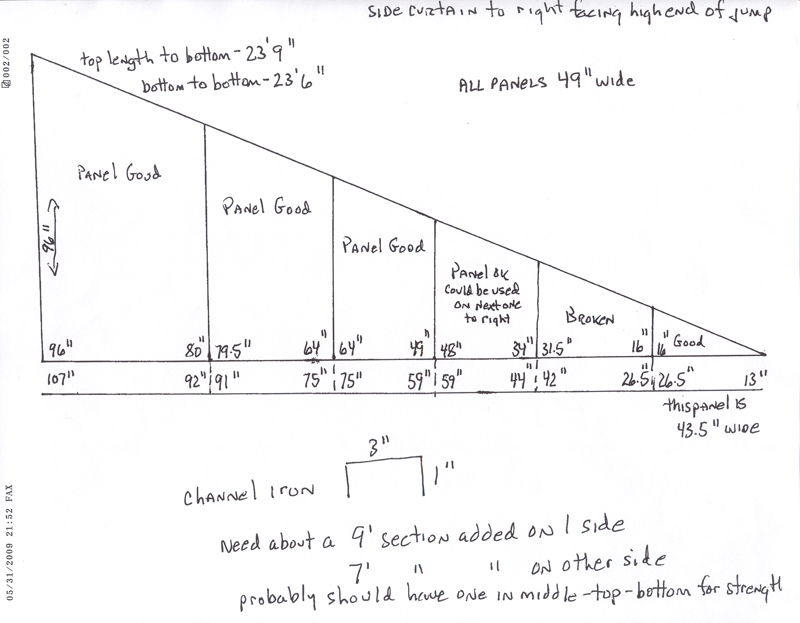 SIDE CURTAIN to right facing high end of jump
002/002
top length to bottom - 23'9"
bottom to bottom - 23'6"
ALL PANELS 49" wide
PANEL Good
PANEL Good
PANEL Good
PANEL OK
Could be used
ON Next one
to right
BROKEN
Good
96"
96" 80" 79.5" 64" 64" 49" 48" 34" 31.5" 16" 16"
107" 92" 91" 75" 75" 59" 59" 44" 42" 26.5" 26.5" 13"
this panel is
43.5" wide
3"
1"
CHANNEL IRON
Need about a 9' section added on 1 side
7' " " on other side
probably should have one in middle - top - bottom for strength
05/31/2009 21:52 FAX